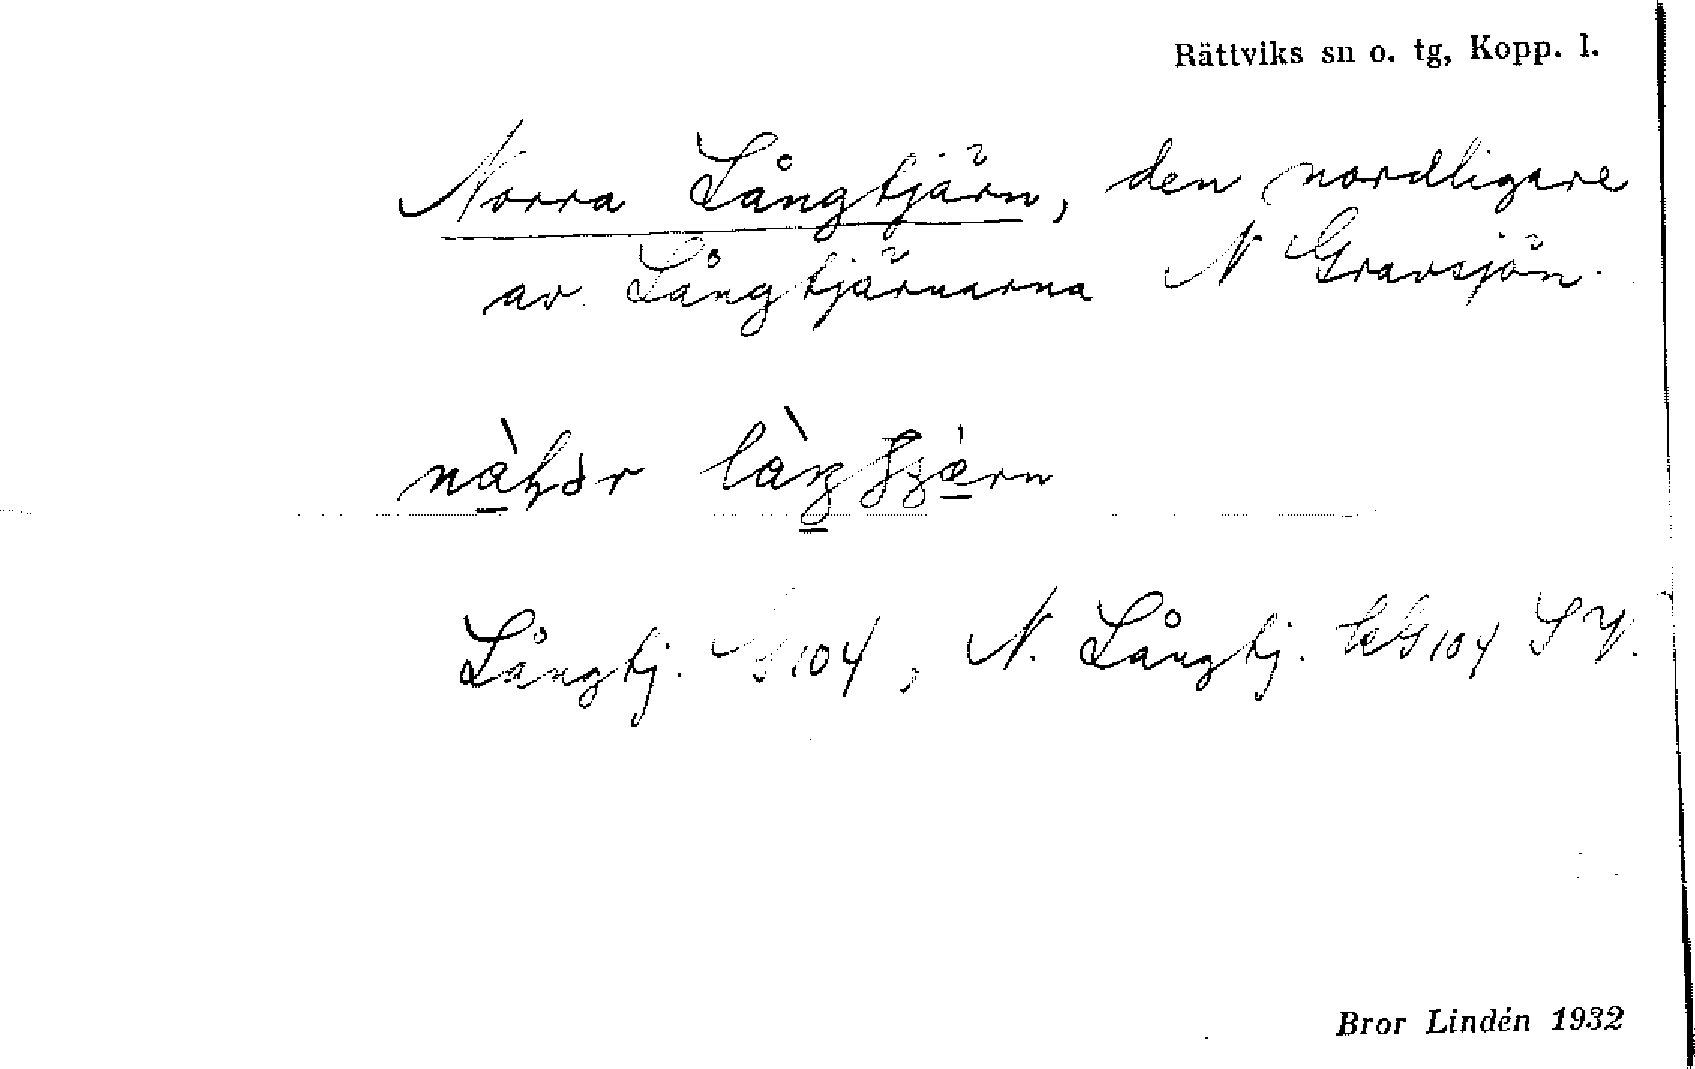 Rättviks sn o. tg, Kopp. l.
Norra Långtjärn, den nordligare
av Långtjärnarna N Gravsjön.
Långtj. 104, N. Långtj. 104
Bror Lindén 1932